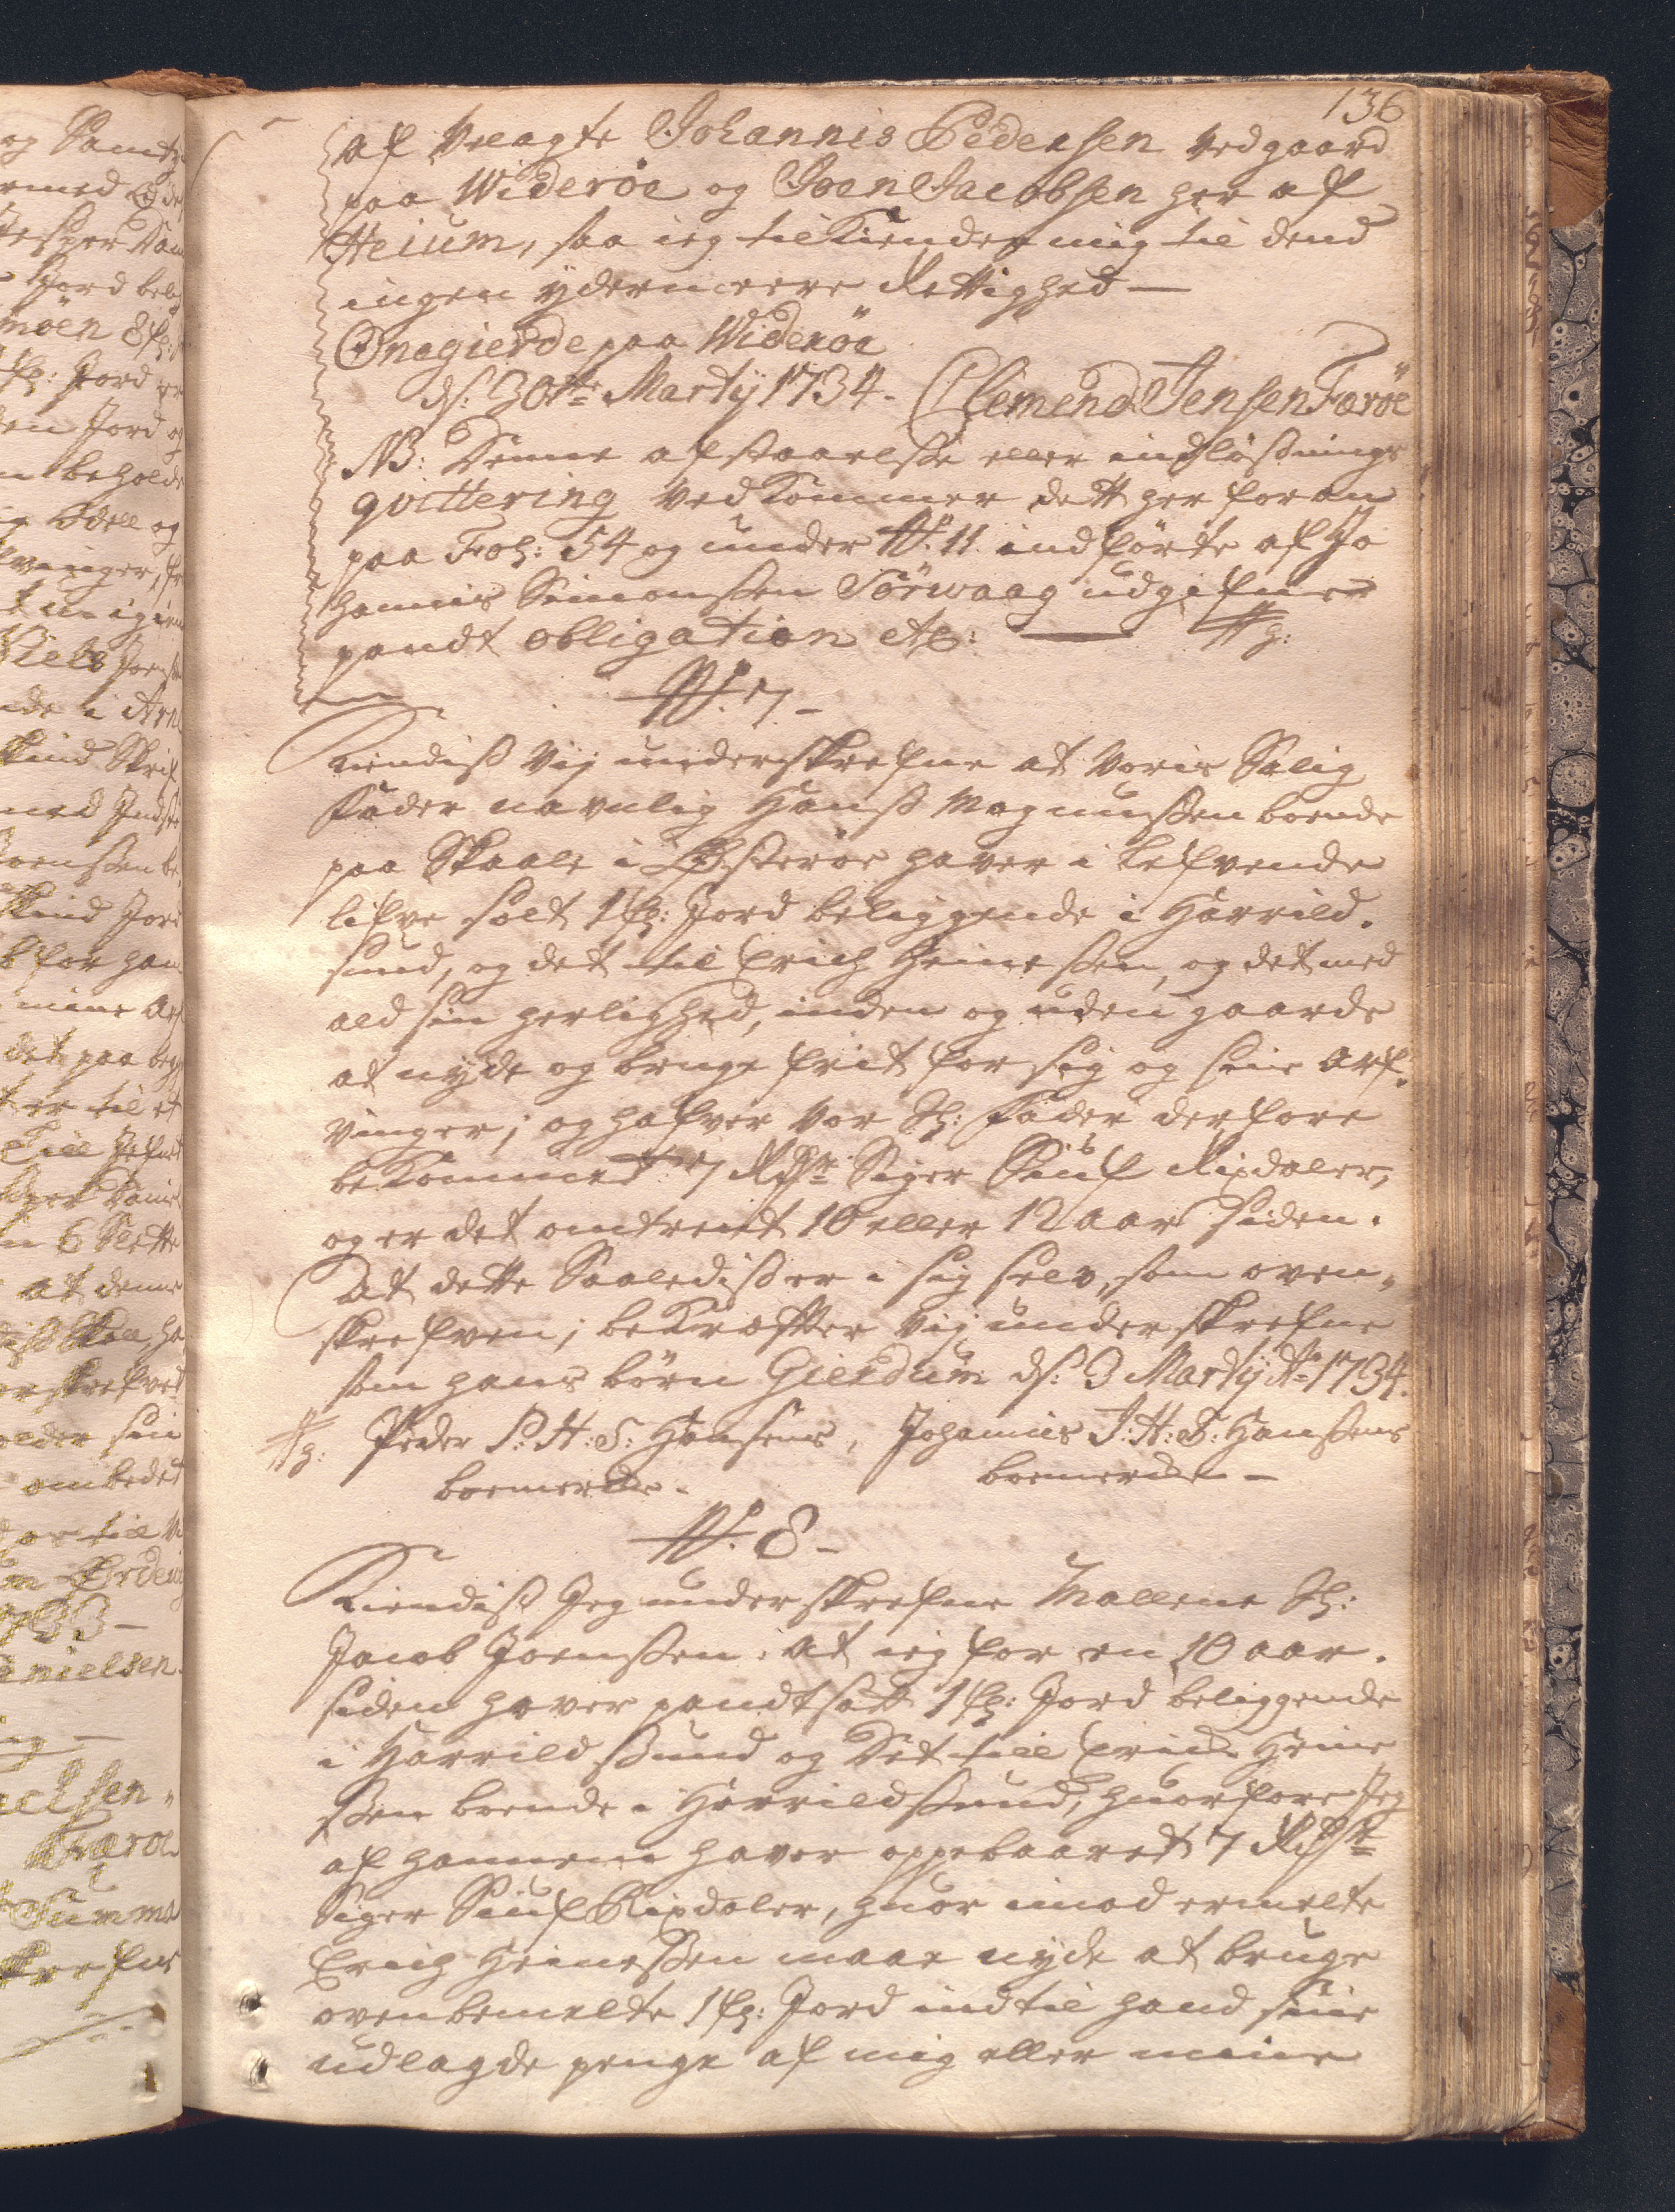 136
af Velagte Johannis Pedersen Vedgaard
paa Widerøe og Joen Jacobsen her af
Heium, saa ieg tilKiender mig til dend
ingen ydermeere Rettighed —
Onagierde paa Widerøe
ds: 30te Martij 1734. Clemend Jensen Færøe
NB: Denne afstaaelsse eller indløssnings
qvittering vedKommer dett her foran
paa Fol: 54 og under No. 11 indførte af Jo
hannis Simonssen Sørwaag udgifne
pandt obligation etc: —
No. 7 –
Kiendiss Vij underskrefne at Voris Salig
Fader navnlig Hanss Magnussen boende
paa Skaale i Østerøe haver i Lefvende
lifve solt 1 fs: Jord beliggende i Harrild.
sund, og det til Erich Heinessen, og det med
ald sin herlighed, inden og uden gaards
at nyde og bruge frit for sig og sine Arf„
vinger; og hafver Vor Sl: Fader derfore
beKommed 7 Rdlr Siger Siuf Rixdaler,
og er det omtrent 10 eller 12 aar siden.
At dette Saalediss er i sig selv, som oven„
skrefven; beKræffter Vij underskrefne
som hans børn Gierdum ds: 3 Martij Ao 1734.
Peder P: H: S: Hansens, Johannes J: H: S: Hanssens
boemerke. boemerke –
No. 8 –
Kiendiss Jeg underskrefne Mallene Sl:
Jacob Joenssen: at ieg for en 10 aar.
siden haver pandtsatt 1 fs: Jord beliggende
i Harrildssund og Det till Erich Heine
ssen boende i Harrildssund, huorfore Jeg
af hannem haver oppebaaret 7 Rdlr
Siger Siuf Rixdaler, huor imod ermelte
Erich Heinessen maae nyde at bruge
ovenbemelte 1 fs: Jord indtil hand sine
udlagde penge af mig eller mine